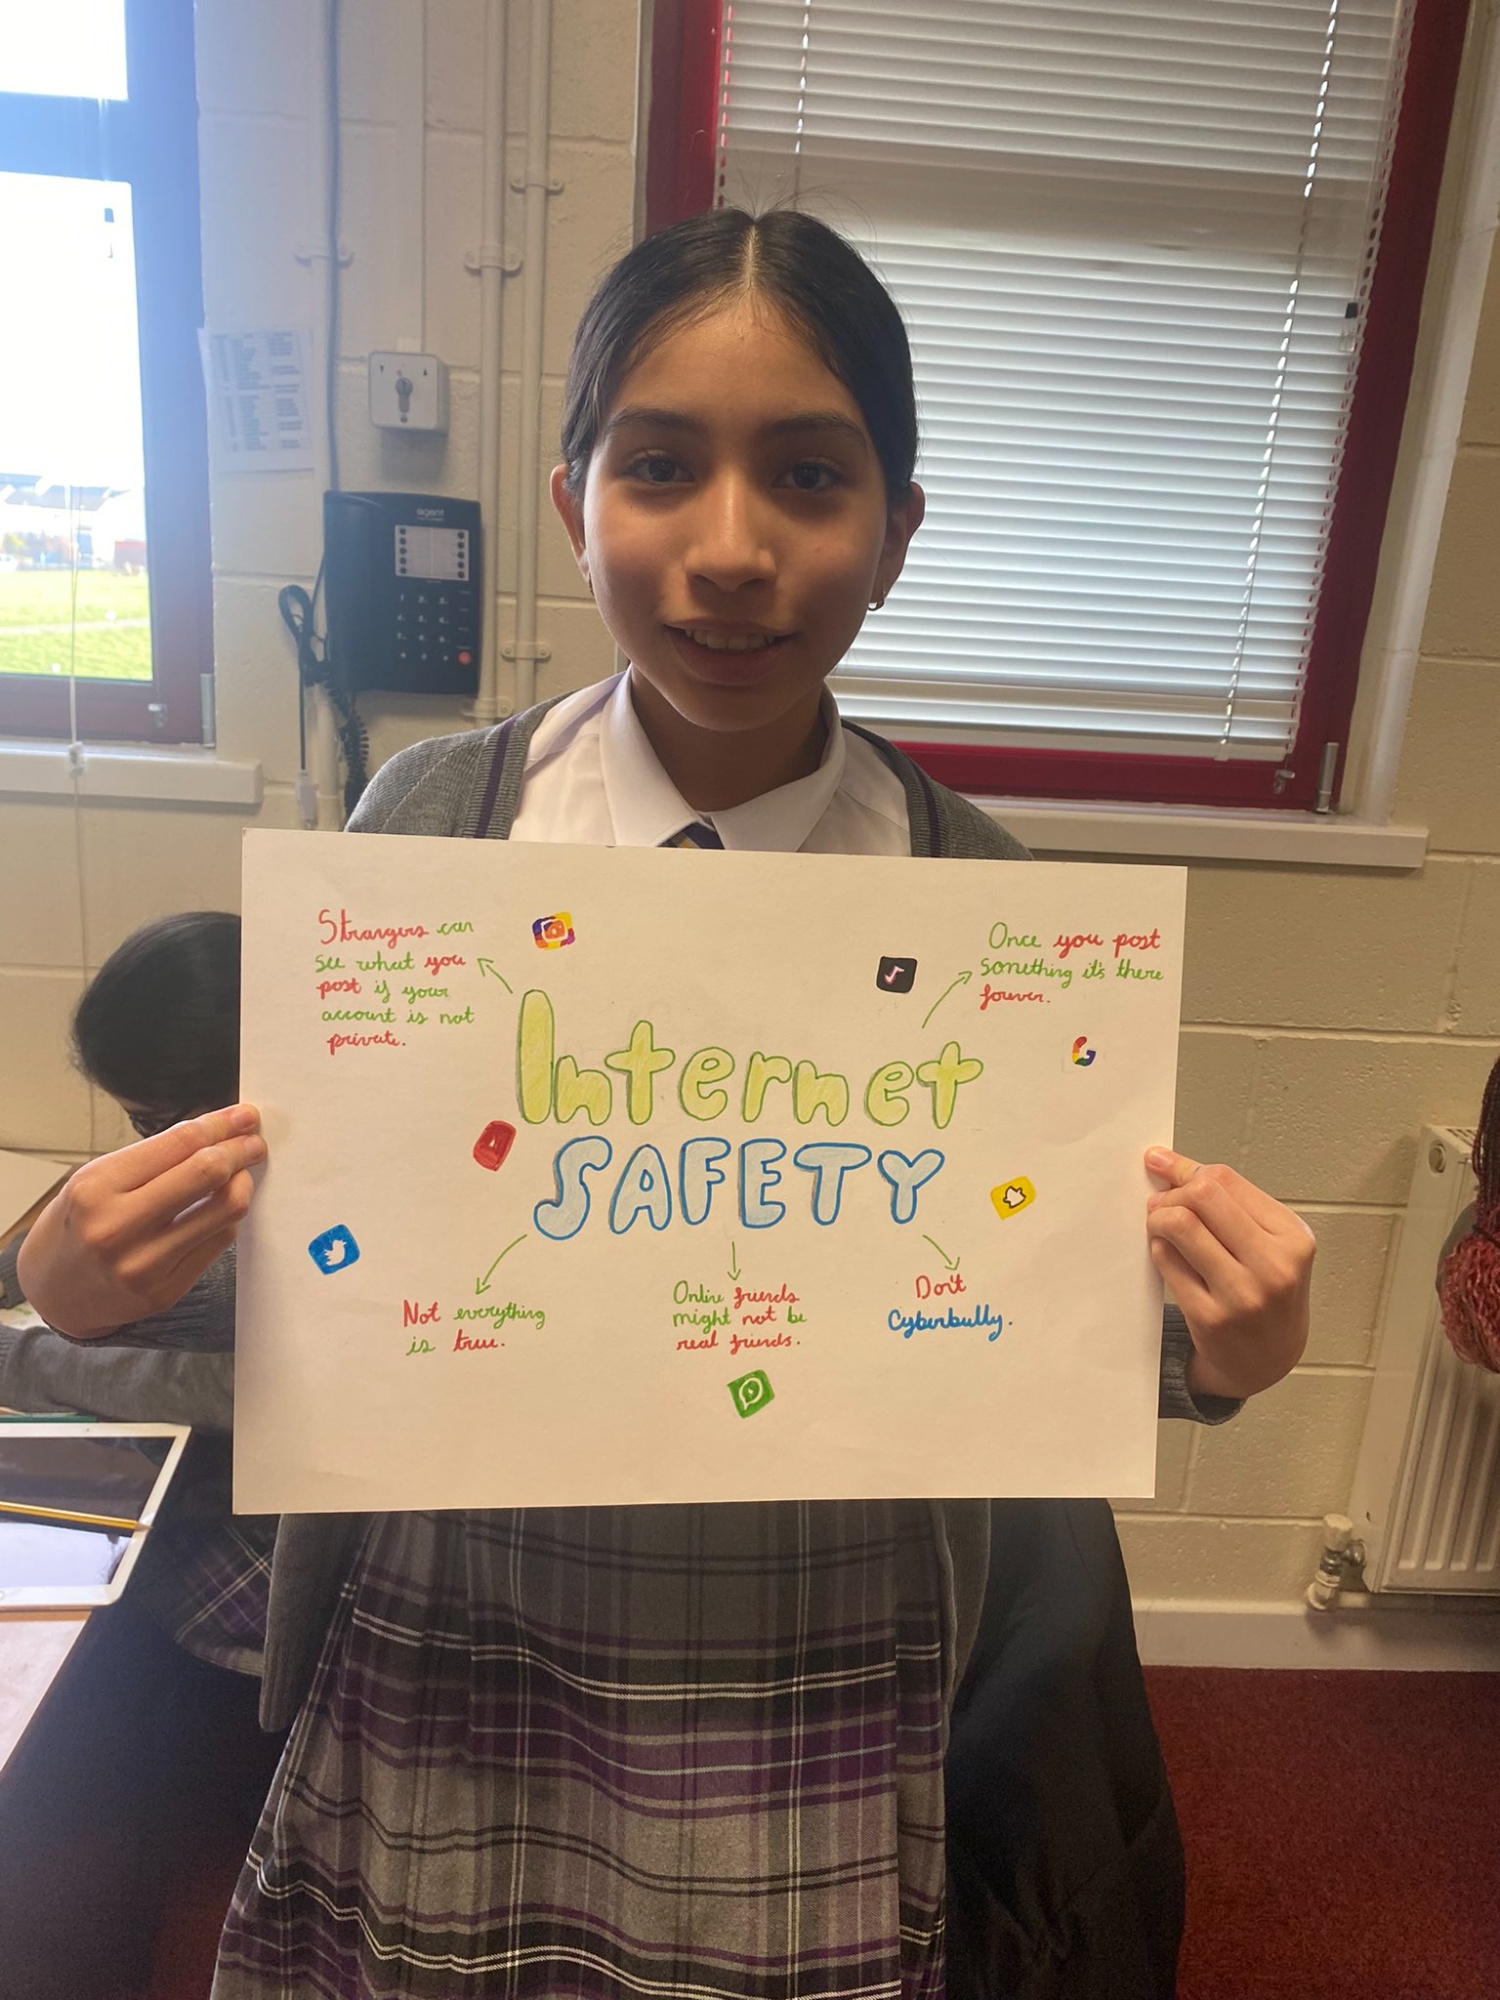 agent
Strangers can
see what you
post if your
account is not
private.
Once you post
something it's there
forever.
Internet
SAFETY
Not everything
is true.
Online friends
might not be
real friends.
Don't
Cyberbully.